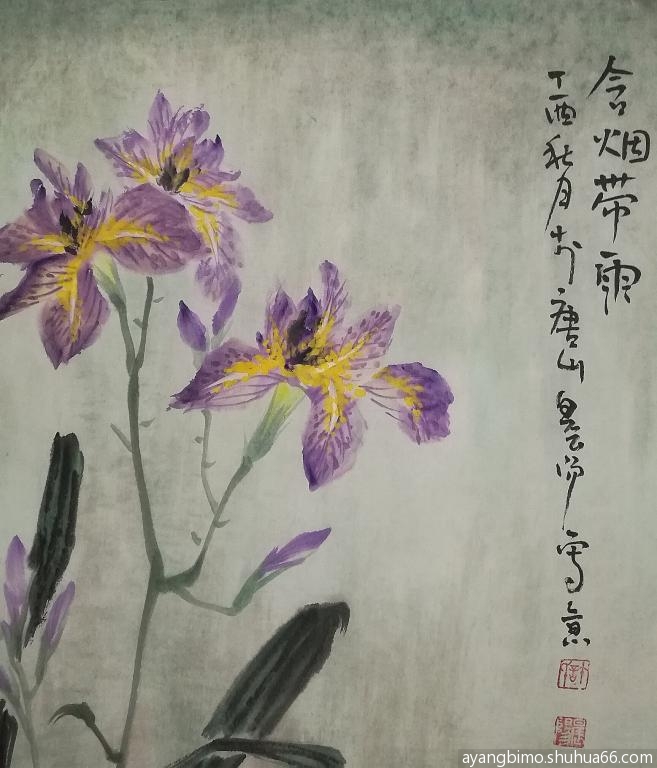 含烟带雨
丁酉秋月于唐山昙阳写意
ayangbimo.shuhua66.com